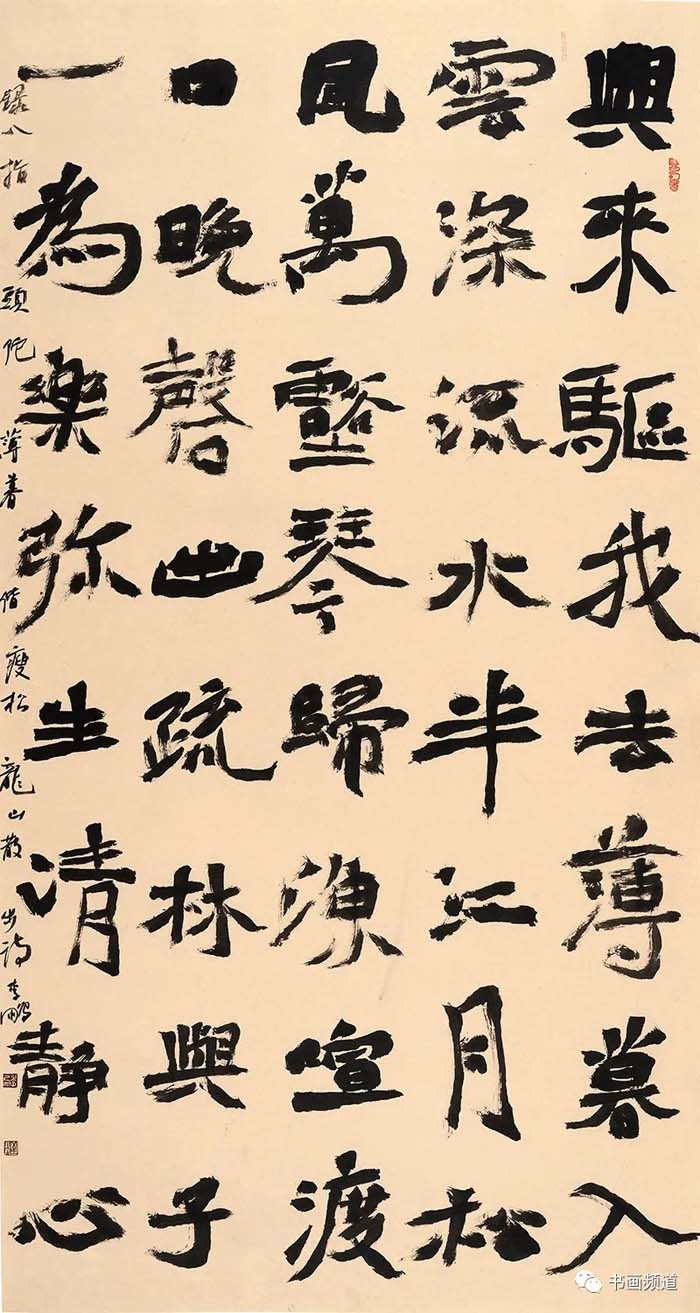 興来驅我去薄暮入
雲深流水半江月松
風萬壑琴歸漁喧渡
口晚磬出疏林與子
一為樂弥生清静心
錄八指頭陀薄暮偕瘦松龍山散步詩李鵬
书画频道